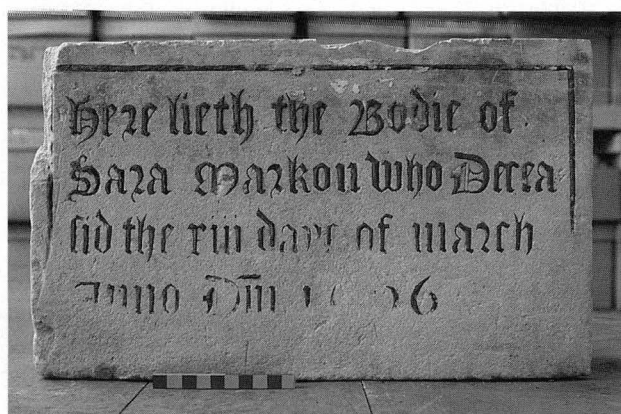 Here lieth the Bodie of
Sara Markon who Decea-
sid the xiii daye of march
Anno Dm̅